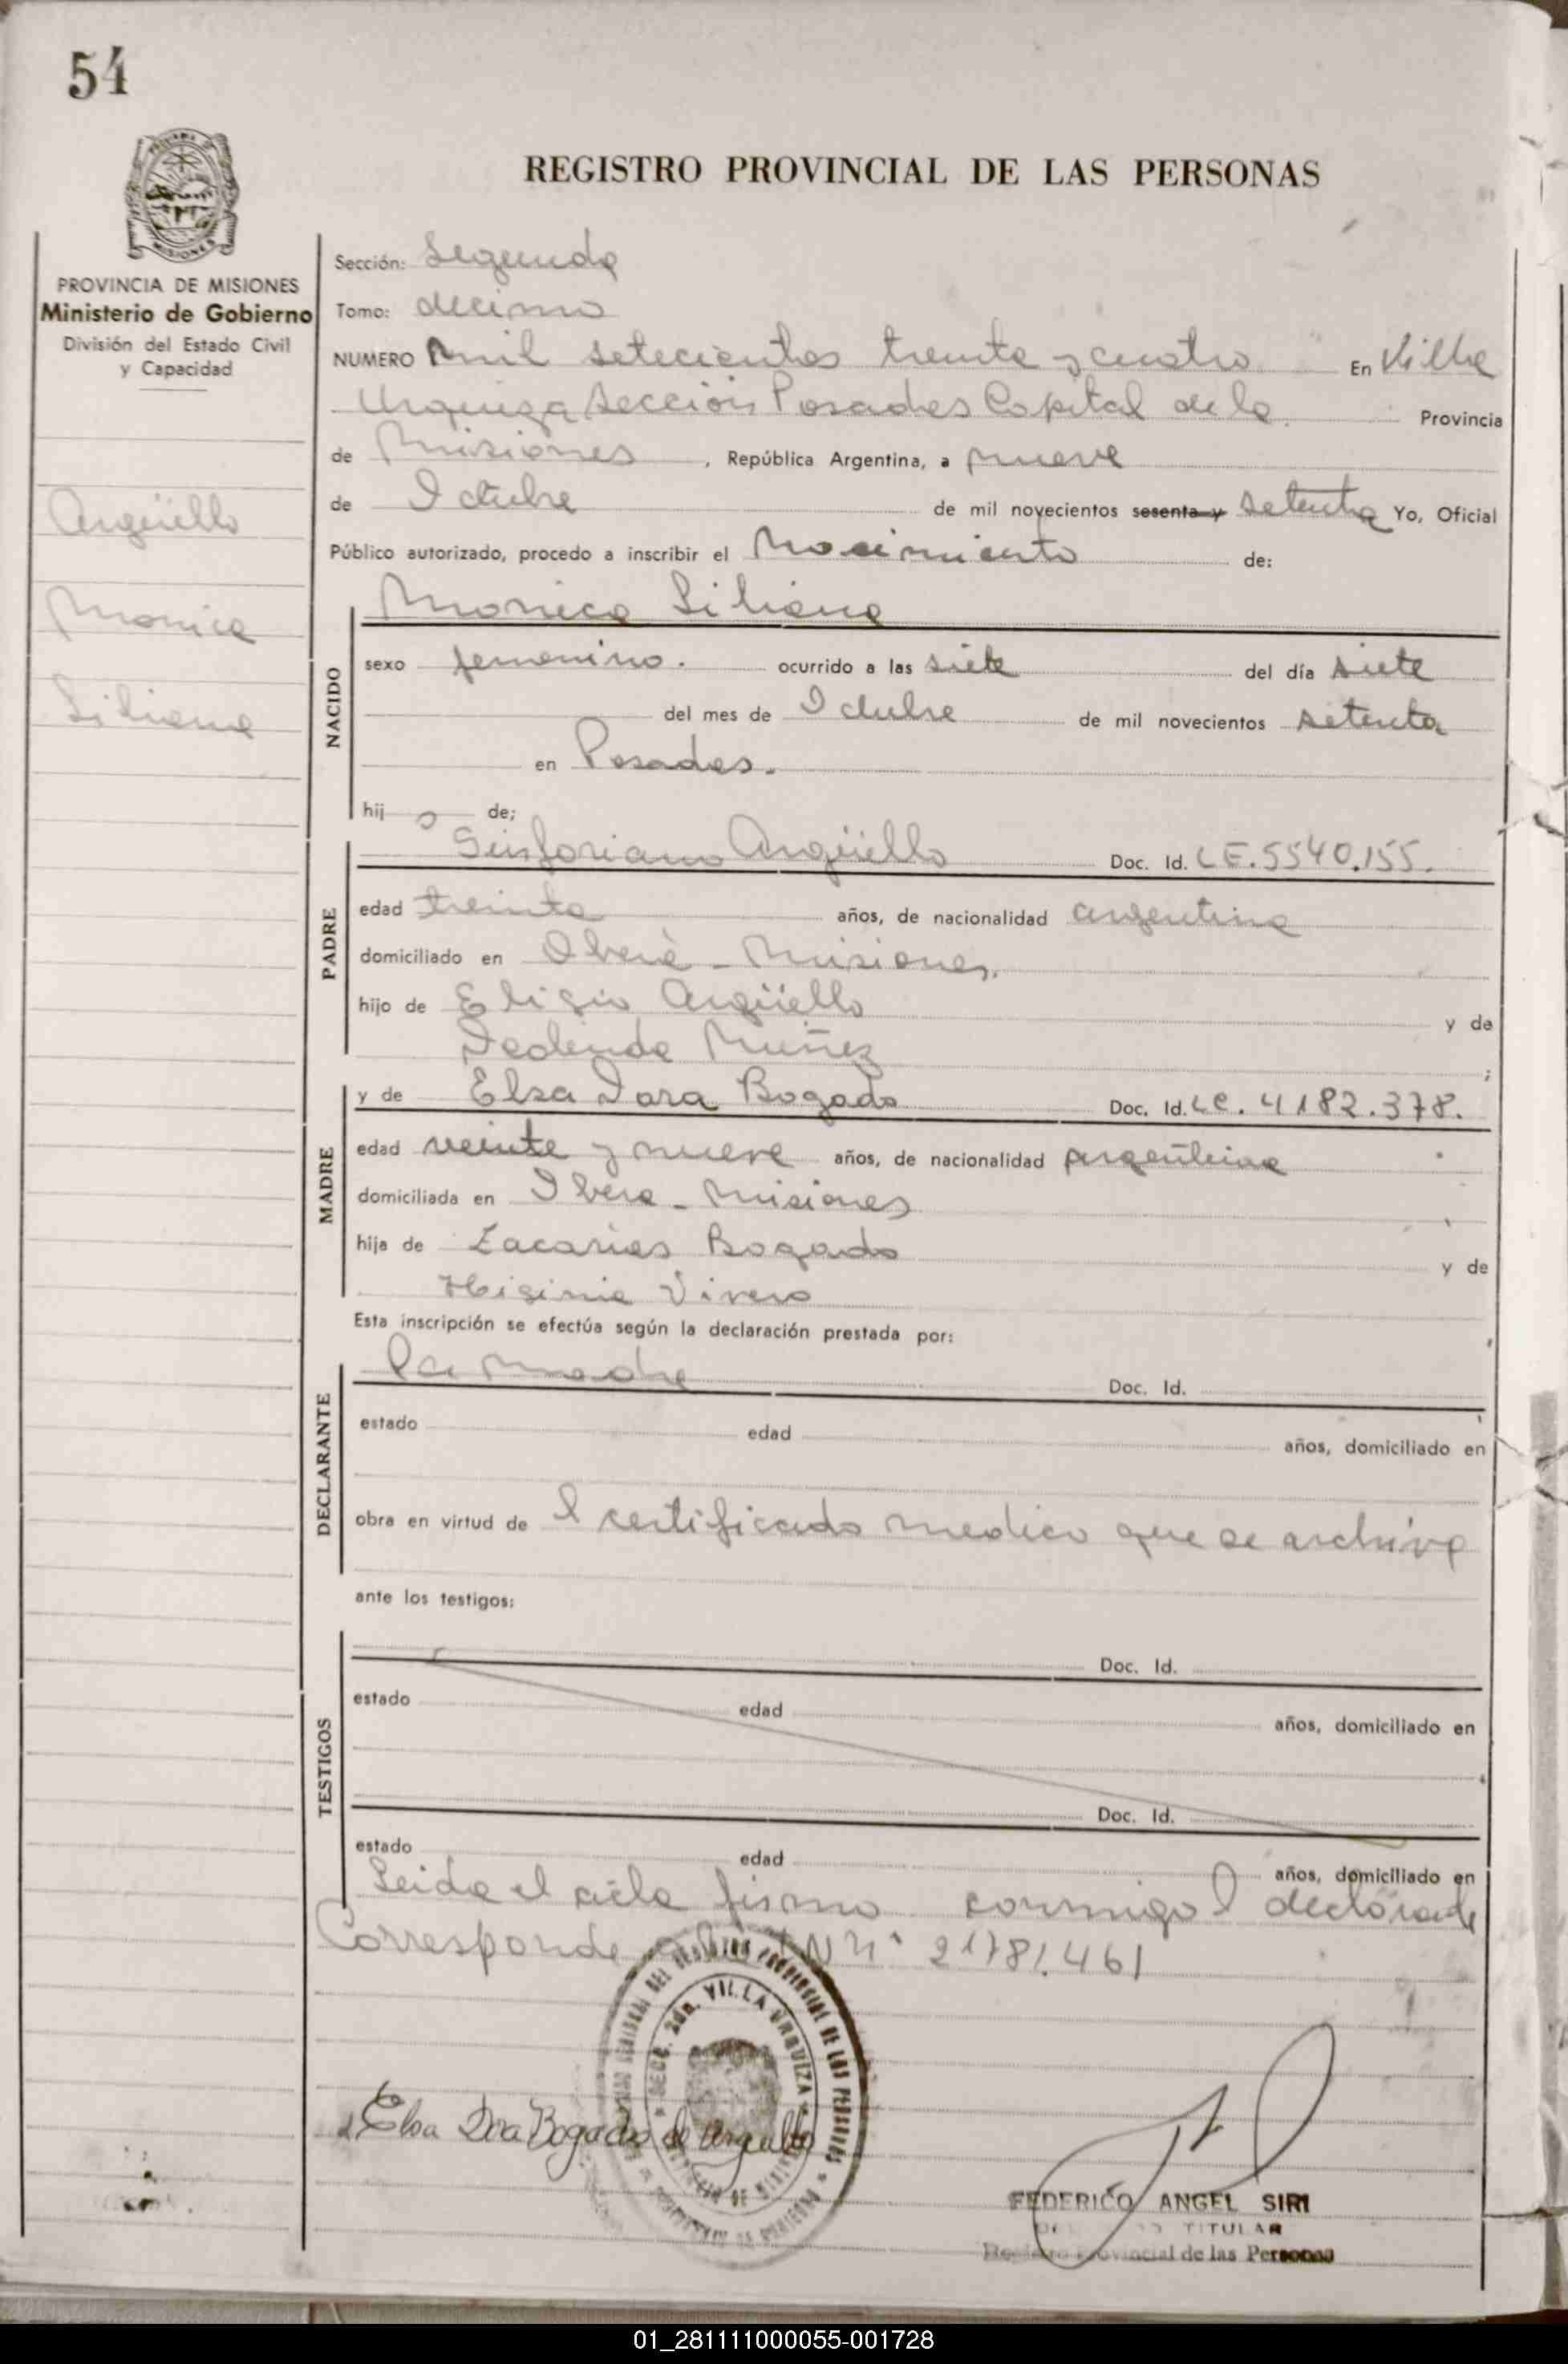 54
REGISTRO PROVINCIAL DE LAS PERSONAS
PROVINCIA DE MISIONES
Ministerio de Gobierno
División del Estado Civil
y Capacidad
Argüello
Monica
Liliana
Sección: Segunda
Tomo: decimo
NUMERO mil setecientos treinta y cuatro En Villa
Urquiza Sección Posadas Capital de la Provincia
de Misiones, República Argentina, a nueve
de Octubre de mil novecientos sesenta y setenta Yo, Oficial
Público autorizado, procedo a inscribir el Nacimiento de:
NACIDO
Monica Liliana
sexo femenino. ocurrido a las siete del día siete
del mes de Octubre de mil novecientos setenta
en Posadas.
hij a de;
PADRE
Sinforiano Argüello Doc. Id. LE.5540.155.
edad treinta años, de nacionalidad argentina
domiciliado en Oberá - Misiones.
hijo de Eligio Argüello y de
Deolinda Muñez ;
MADRE
y de Elsa Dora Bogado Doc. Id. LC. 4182.378.
edad veinte y nueve años, de nacionalidad argentina
domiciliada en Obera - Misiones
hija de Zacarias Bogado y de
Higinia Vivero
Esta inscripción se efectúa según la declaración prestada por:
DECLARANTE
La Madre Doc. Id.
estado edad años, domiciliado en
obra en virtud de l certificado medico que se archiva
ante los testigos:
TESTIGOS
Doc. Id.
estado edad años, domiciliado en
Doc. Id.
estado edad años, domiciliado en
Leida el acta firma conmigo l declarante
Corresponde Nº 21781.461
SECC. 2da. VILLA URQUIZA
REGISTRO PROVINCIAL DE LAS PERSONAS
Elsa Dora Bogado de Arguello
FEDERICO ANGEL SIRI
TITULAR
Registro Provincial de las Personas
01_281111000055-001728